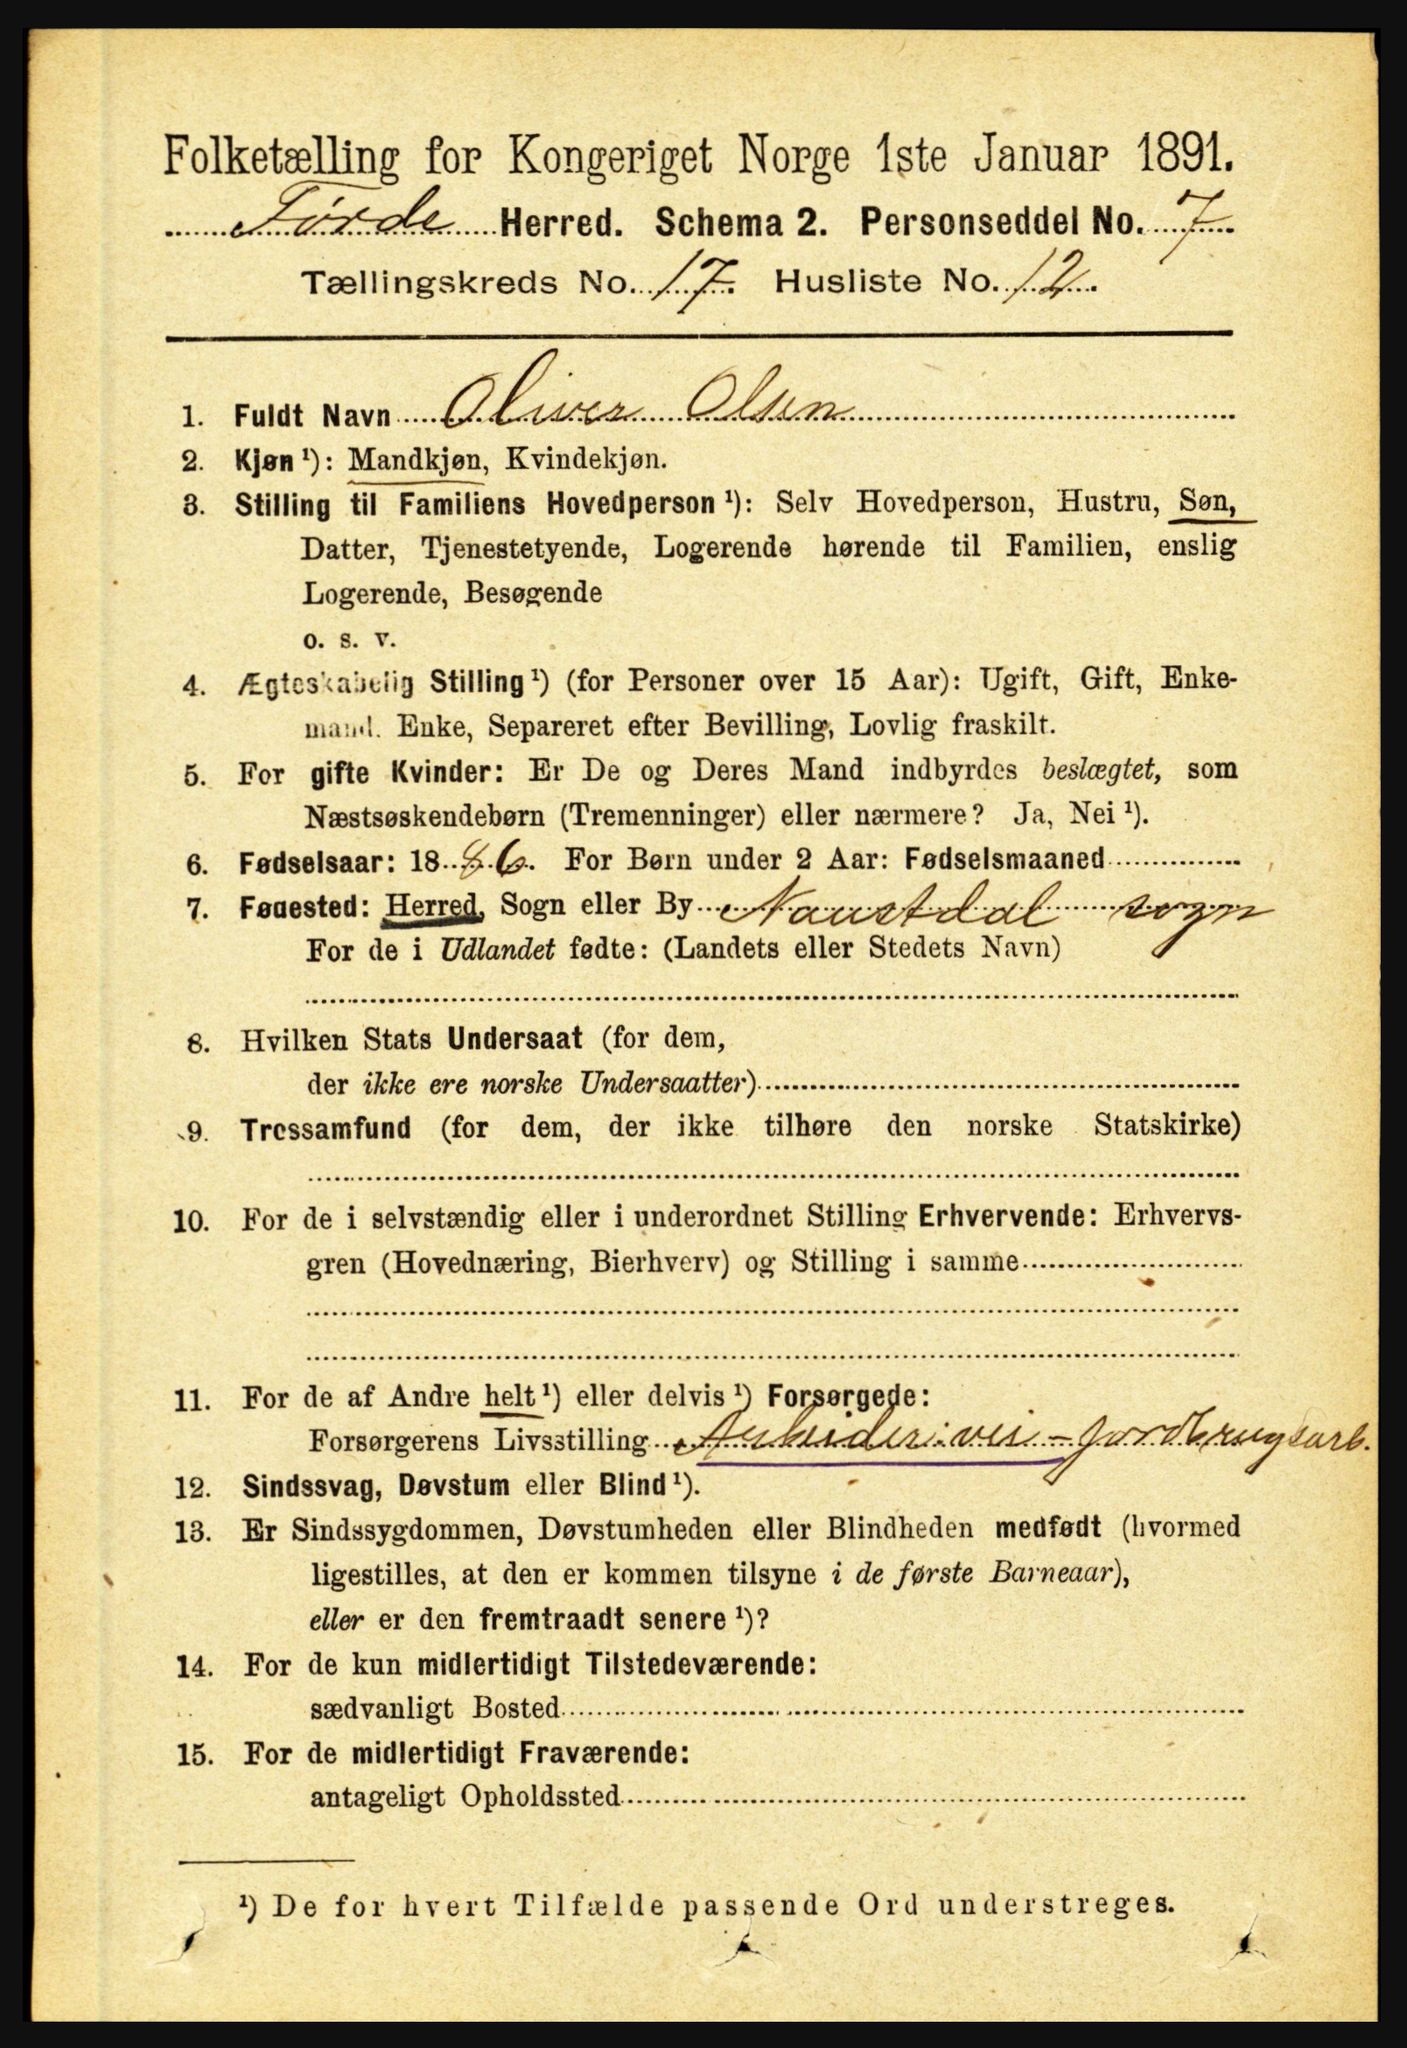 Folketælling for Kongeriget Norge 1ste Januar 1891.
Førde Herred. Schema 2. Personseddel No. 7
Tællingskreds No. 17. Husliste No. 12.
1. Fuldt Navn Oliver Olsen
2. Kjøn ¹): Mandkjøn, Kvindekjøn.
3. Stilling til Familiens Hovedperson ¹): Selv Hovedperson, Hustru, Søn,
Datter, Tjenestetyende, Logerende hørende til Familien, enslig
Logerende, Besøgende
o. s. v.
4. Ægteskabelig Stilling ¹) (for Personer over 15 Aar): Ugift, Gift, Enke-
mand. Enke, Separeret efter Bevilling, Lovlig fraskilt.
5. For gifte Kvinder: Er De og Deres Mand indbyrdes beslægtet, som
Næstsøskendebørn (Tremenninger) eller nærmere? Ja, Nei ¹).
6. Fødselsaar: 1886. For Børn under 2 Aar: Fødselsmaaned
7. Fødested: Herred, Sogn eller By Naustdal sogn
For de i Udlandet fødte: (Landets eller Stedets Navn)
8. Hvilken Stats Undersaat (for dem,
der ikke ere norske Undersaatter)
9. Trossamfund (for dem, der ikke tilhøre den norske Statskirke)
10. For de i selvstændig eller i underordnet Stilling Erhvervende: Erhvervs-
gren (Hovednæring, Bierhverv) og Stilling i samme
11. For de af Andre helt ¹) eller delvis ¹) Forsørgede:
Forsørgerens Livsstilling Arbeider: - jordbrugsarb.
12. Sindssvag, Døvstum eller Blind ¹).
13. Er Sindssygdommen, Døvstumheden eller Blindheden medfødt (hvormed
ligestilles, at den er kommen tilsyne i de første Barneaar),
eller er den fremtraadt senere ¹)?
14. For de kun midlertidigt Tilstedeværende:
sædvanligt Bosted
15. For de midlertidigt Fraværende:
antageligt Opholdssted
¹) De for hvert Tilfælde passende Ord understreges.